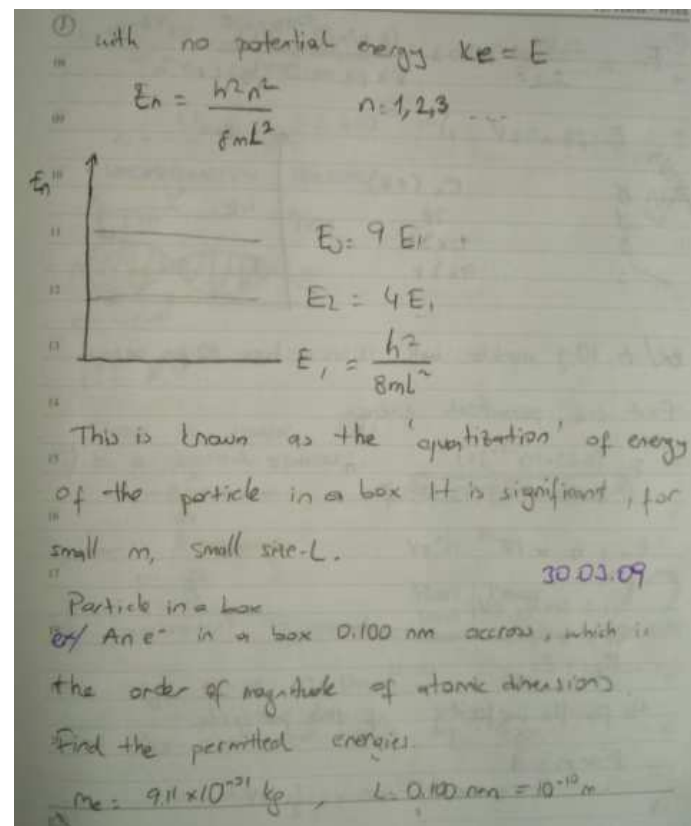 ①
with no potential energy ke = E
En = h²n² / 8mL² n = 1, 2, 3 ....
En
E3 = 9 E1
E2 = 4 E1
E1 = h² / 8mL²
This is known as the 'quantization' of energy
of the particle in a box It is signifiant, for
small m, small size-L.
30.03.09
Particle in a box
ex/ An e⁻ in a box 0.100 nm accross, which is
the order of magnitude of atomic dimensions.
Find the permitted energies.
me = 9.11 x 10⁻³¹ kg, L = 0.100 nm = 10⁻¹⁰ m